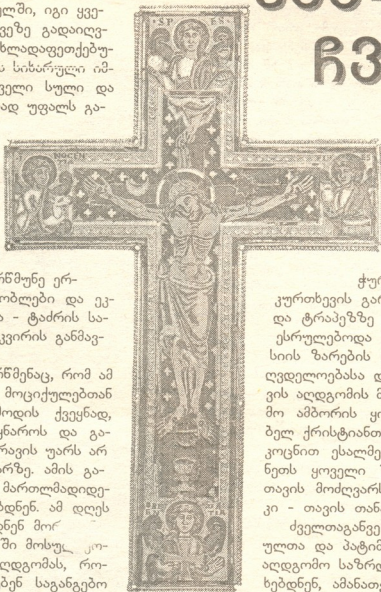 ჩვ
ულში, იგი ყვე-
ვეზე გადაიღვ-
ხლადაფეთქებუ-
ს სიხარული იმ-
ველი სული და
ად უფალს გა-
რწმუნე ერ-
ობლები და ეკ-
ა - ტაძრის სა-
კვირის განმავ-
რწმენაც, რომ ამ
მოციქულებთან
მოდის ქვეყნად,
ყნაროს და გა-
რავის უარს არ
არზე. ამის გა-
მართლმადიდე-
ბდნენ. ამ დღეს
დნენ
ში მოსულ
აღდგომას, რო-
ბენ საგანგებო
ჭურ
კურთხევის გარ
და ტრაპეზზე
ესრულებოდა
სიის ზარების
ღვდელოებასა და
ვის აღდგომის მ
მო ამბორის ყო
ბელ ქრისტიანთ
კოცნით ესალმე
ნეთს ყოველი
თავის მოძღვარს
კი - თავის თანა
ძველთაგანვე
ულთა და პატიმ
აღდგომო საზრდ
ხებდნენ, ამანათე